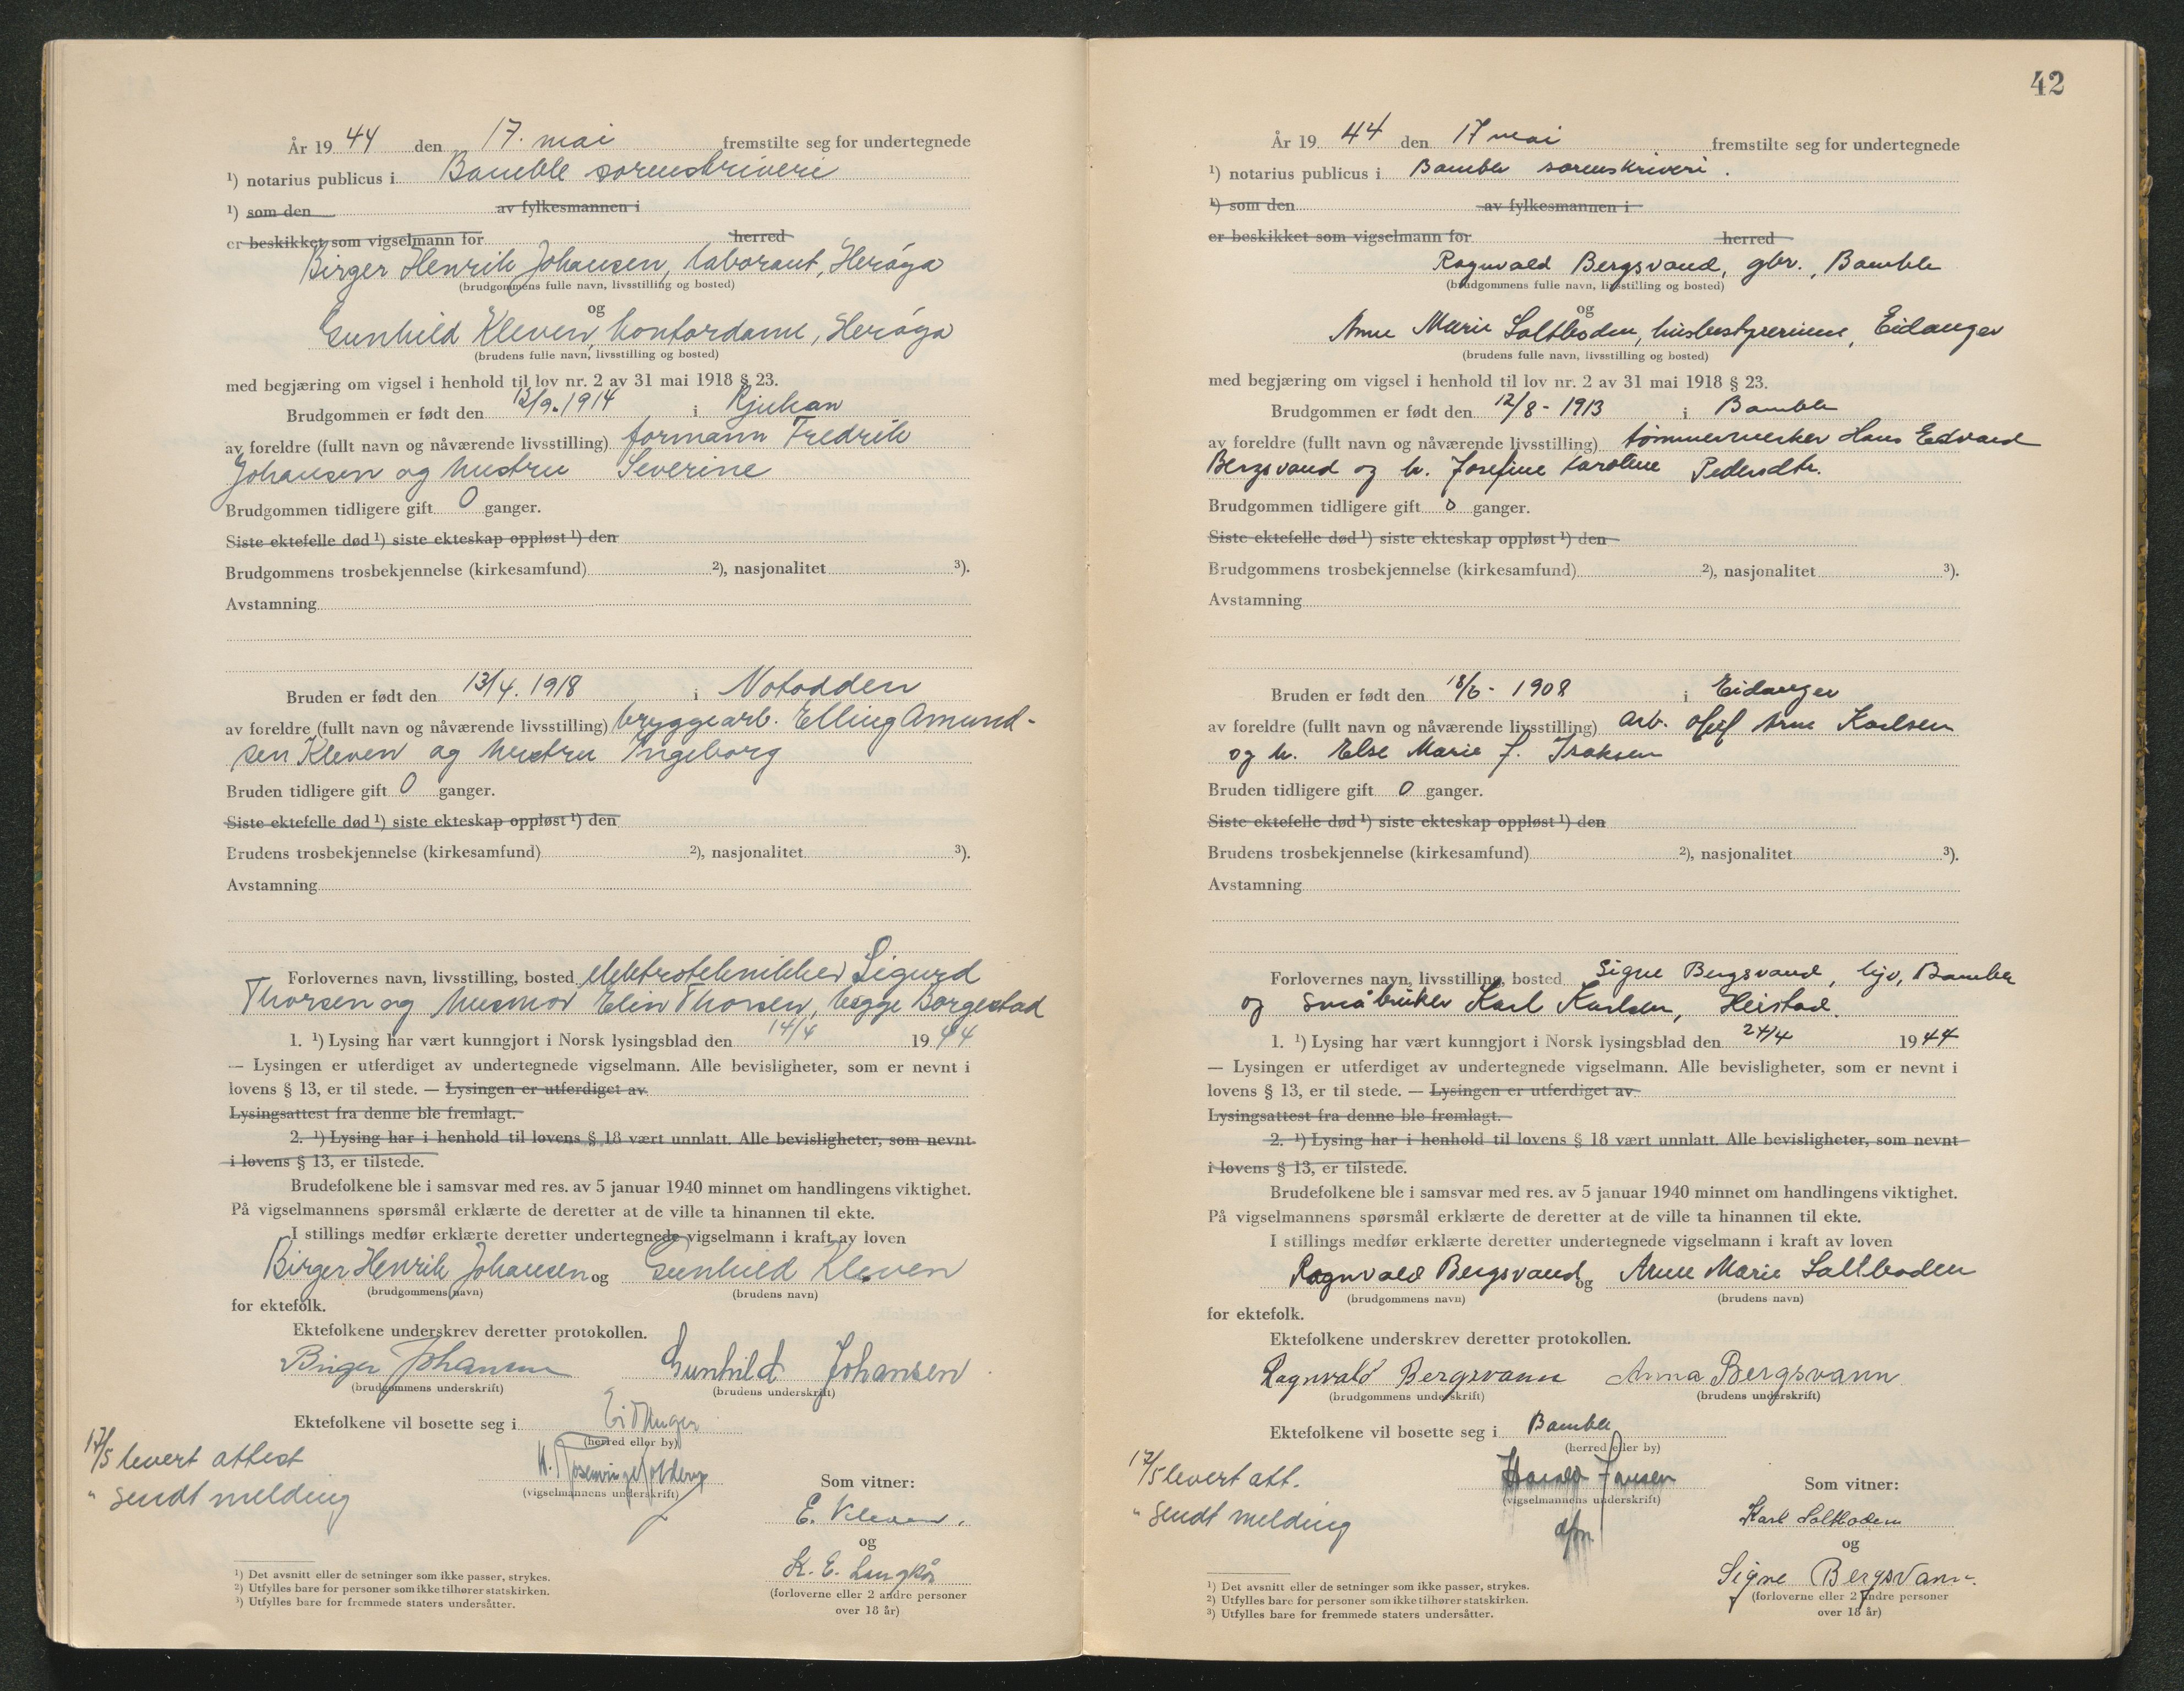 År 19 44 den 17. mai fremstilte seg for undertegnede
¹) notarius publicus i Bamble sorenskriveri
¹) som den av fylkesmannen i
er beskikket som vigselmann for herred
Birger Henrik Johansen, laborant, Herøya
(brudgommens fulle navn, livsstilling og bosted)
og
Gunhild Kleven, kontordame, Herøya
(brudens fulle navn, livsstilling og bosted)
med begjæring om vigsel i henhold til lov nr. 2 av 31 mai 1918 § 23.
Brudgommen er født den 12/9. 1914 i Rjukan
av foreldre (fullt navn og nåværende livsstilling) formann Fredrik
Johansen og hustru Severine
Brudgommen tidligere gift 0 ganger.
Siste ektefelle død ¹) siste ekteskap oppløst ¹) den
Brudgommens trosbekjennelse (kirkesamfund) ²), nasjonalitet ³).
Avstamning
Bruden er født den 13/4. 1918 i Notodden
av foreldre (fullt navn og nåværende livsstilling) bryggearb. Elling Amund-
sen Kleven og hustru Ingeborg
Bruden tidligere gift 0 ganger.
Siste ektefelle død ¹) siste ekteskap oppløst ¹) den
Brudens trosbekjennelse (kirkesamfund) ²), nasjonalitet ³).
Avstamning
Forlovernes navn, livsstilling, bosted elektrotekniker Sigurd
Thorsen og husmor Elin Thorsen, begge Borgestad
1. ¹) Lysing har vært kunngjort i Norsk lysingsblad den 14/4 19 44
— Lysingen er utferdiget av undertegnede vigselmann. Alle bevisligheter, som er nevnt i
lovens § 13, er til stede. — Lysingen er utferdiget av
Lysingsattest fra denne ble fremlagt.
2. ¹) Lysing har i henhold til lovens § 18 vært unnlatt. Alle bevisligheter, som nevnt
i lovens § 13, er tilstede.
Brudefolkene ble i samsvar med res. av 5 januar 1940 minnet om handlingens viktighet.
På vigselmannens spørsmål erklærte de deretter at de ville ta hinannen til ekte.
I stillings medfør erklærte deretter undertegnede vigselmann i kraft av loven
Birger Henrik Johansen og Gunhild Kleven
(brudgommens navn) (brudens navn)
for ektefolk.
Ektefolkene underskrev deretter protokollen.
Birger Johansen Gunhild Johansen
(brudgommens underskrift) (brudens underskrift)
Ektefolkene vil bosette seg i Eidanger
(herred eller by)
17/5 levert attest
" sendt melding
(vigselmannens underskrift)
Som vitner:
E. Kleven.
og
K. E. Langkås
(forloverne eller 2 andre personer
over 18 år)
¹) Det avsnitt eller de setninger som ikke passer, strykes.
²) Utfylles bare for personer som ikke tilhører statskirken.
³) Utfylles bare for fremmede staters undersåtter.
42
År 19 44 den 17 mai fremstilte seg for undertegnede
¹) notarius publicus i Bamble sorenskriveri.
¹) som den av fylkesmannen i
er beskikket som vigselmann for herred
Ragnvald Bergsvand, gbr., Bamble
(brudgommens fulle navn, livsstilling og bosted)
og
Anne Marie Saltboden, husbestyrerinne, Eidanger
(brudens fulle navn, livsstilling og bosted)
med begjæring om vigsel i henhold til lov nr. 2 av 31 mai 1918 § 23.
Brudgommen er født den 12/8 - 1913 i Bamble
av foreldre (fullt navn og nåværende livsstilling) tømmermerker Hans Edvard
Bergsvand og h. Josefine Karoline Pedersdtr.
Brudgommen tidligere gift 0 ganger.
Siste ektefelle død ¹) siste ekteskap oppløst ¹) den
Brudgommens trosbekjennelse (kirkesamfund) ²), nasjonalitet ³).
Avstamning
Bruden er født den 18/6 - 1908 i Eidanger
av foreldre (fullt navn og nåværende livsstilling) arb. Arne Karlsen
og h. Else Marie f. Isaksen
Bruden tidligere gift 0 ganger.
Siste ektefelle død ¹) siste ekteskap oppløst ¹) den
Brudens trosbekjennelse (kirkesamfund) ²), nasjonalitet ³).
Avstamning
Forlovernes navn, livsstilling, bosted Signe Bergsvand, hjv, Bamble
og småbruker Karl Karlsen, Heistad.
1. ¹) Lysing har vært kunngjort i Norsk lysingsblad den 24/4 19 44
— Lysingen er utferdiget av undertegnede vigselmann. Alle bevisligheter, som er nevnt i
lovens § 13, er til stede. — Lysingen er utferdiget av
Lysingsattest fra denne ble fremlagt.
2. ¹) Lysing har i henhold til lovens § 18 vært unnlatt. Alle bevisligheter, som nevnt
i lovens § 13, er tilstede.
Brudefolkene ble i samsvar med res. av 5 januar 1940 minnet om handlingens viktighet.
På vigselmannens spørsmål erklærte de deretter at de ville ta hinannen til ekte.
I stillings medfør erklærte deretter undertegnede vigselmann i kraft av loven
Ragnvald Bergsvand og Anne Marie Saltboden
(brudgommens navn) (brudens navn)
for ektefolk.
Ektefolkene underskrev deretter protokollen.
Ragnvald Bergsvann Anna Bergsvann
(brudgommens underskrift) (brudens underskrift)
Ektefolkene vil bosette seg i Bamble
(herred eller by)
17/5 levert att.
" sendt melding
Harald Jansen
(vigselmannens underskrift)
Som vitner:
Karl Saltboden
og
Signe Bergsvann.
(forloverne eller 2 andre personer
over 18 år)
¹) Det avsnitt eller de setninger som ikke passer, strykes.
²) Utfylles bare for personer som ikke tilhører statskirken.
³) Utfylles bare for fremmede staters undersåtter.